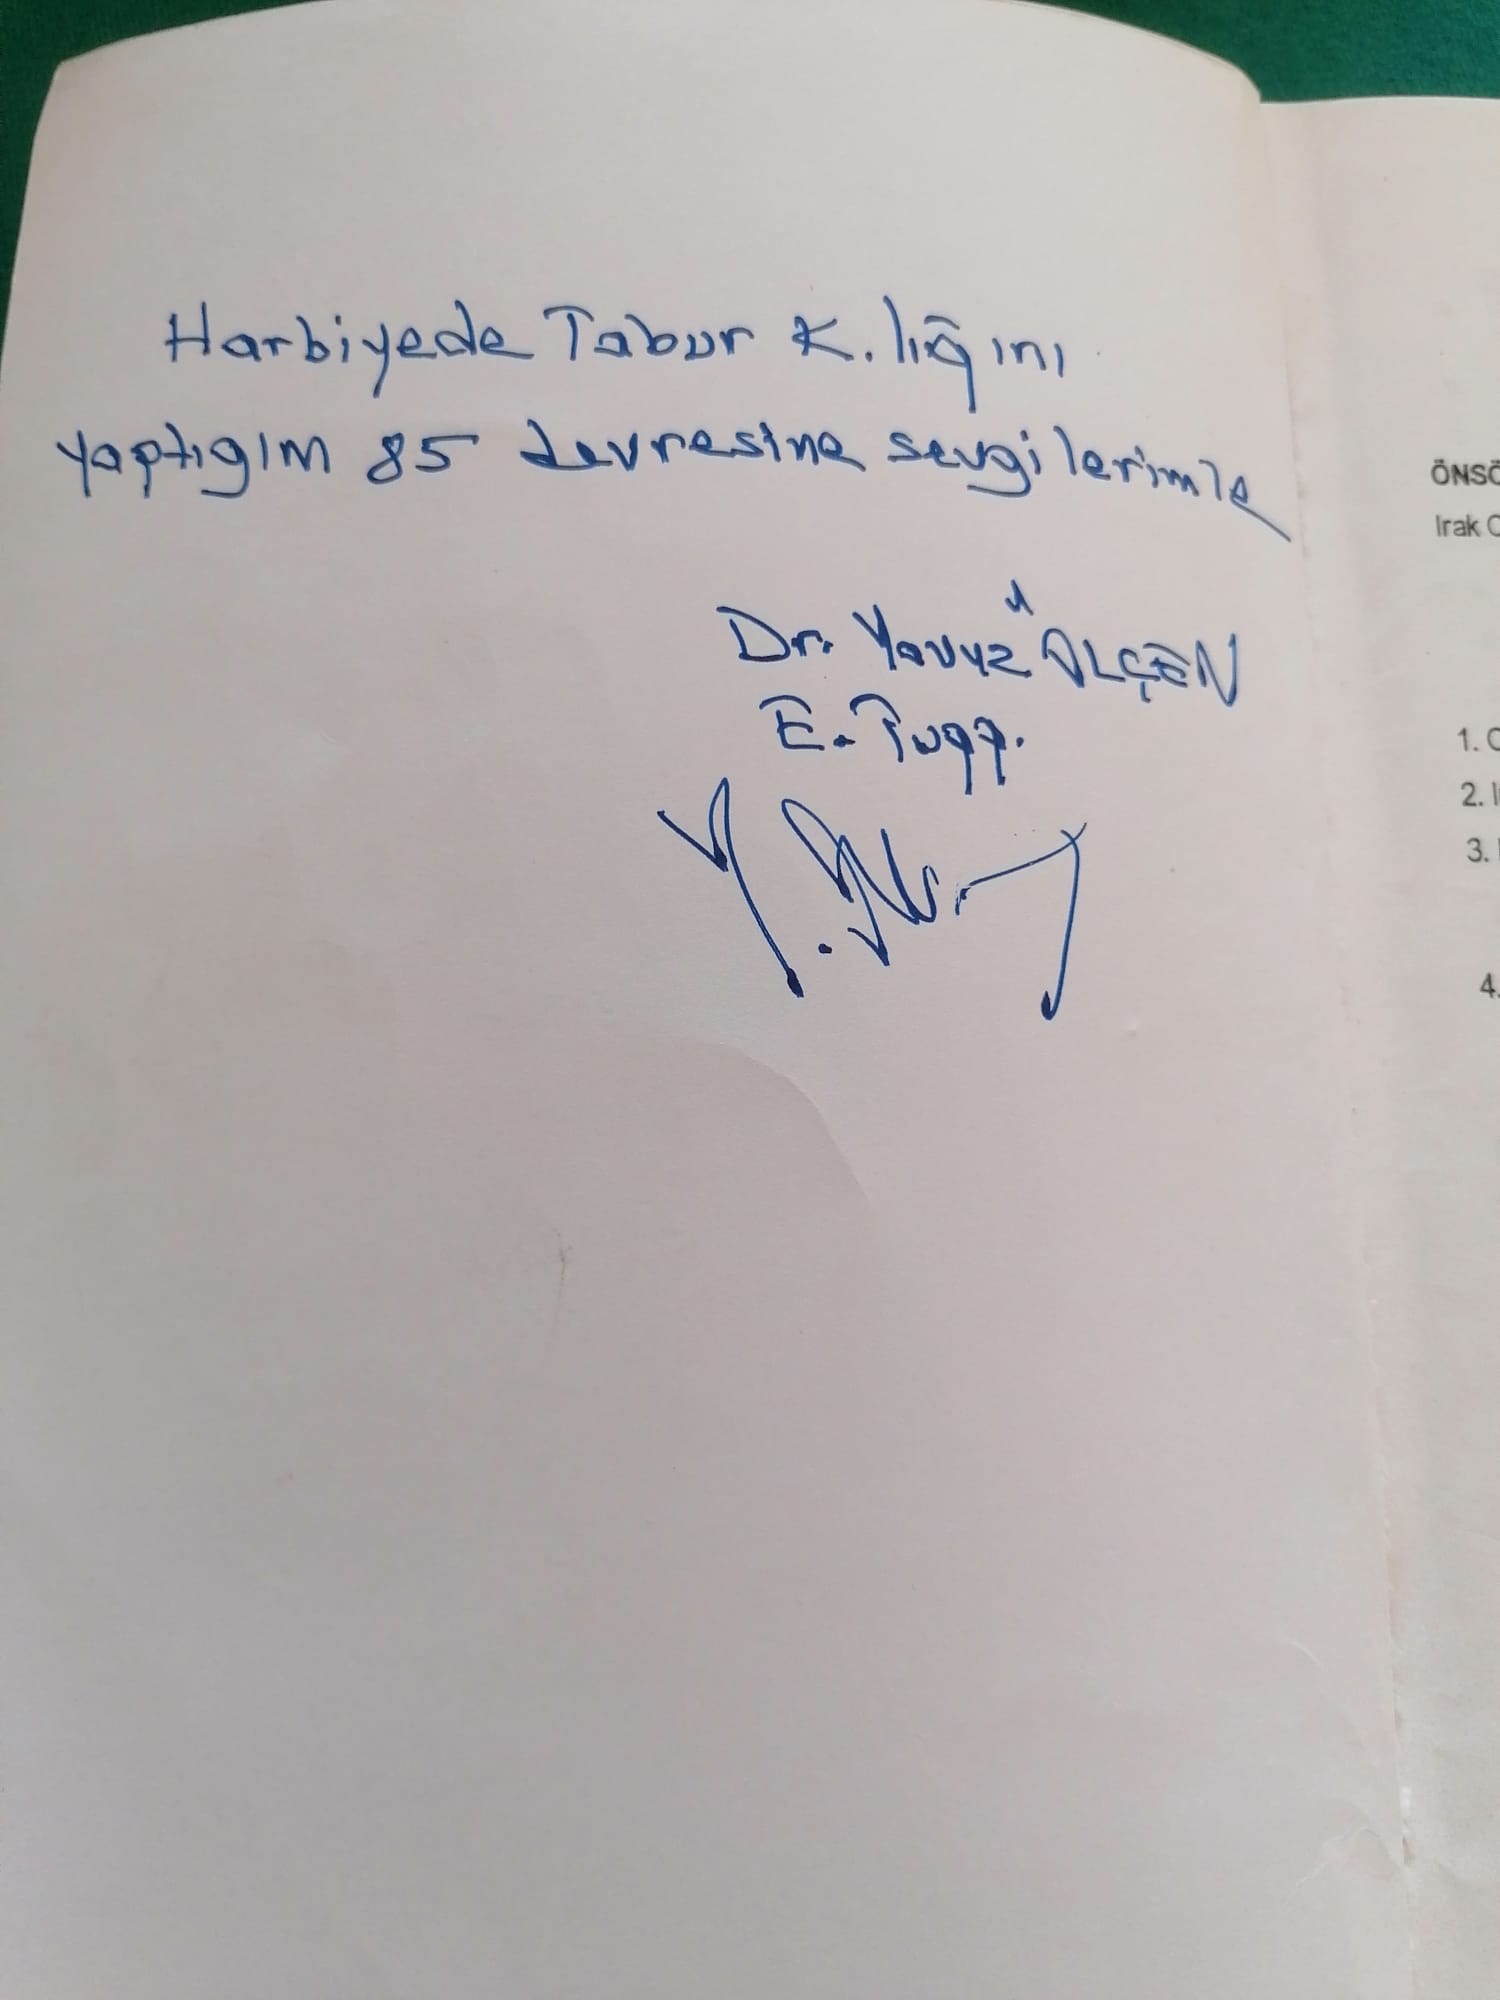 Harbiyede Tabur K.lığını
yaptıgım 85 devresine sevgilerimle
Dr. Yavuz ÖLÇEN
E. Tugg.
ÖNSÖ
Irak
1.
2.
3.
4.